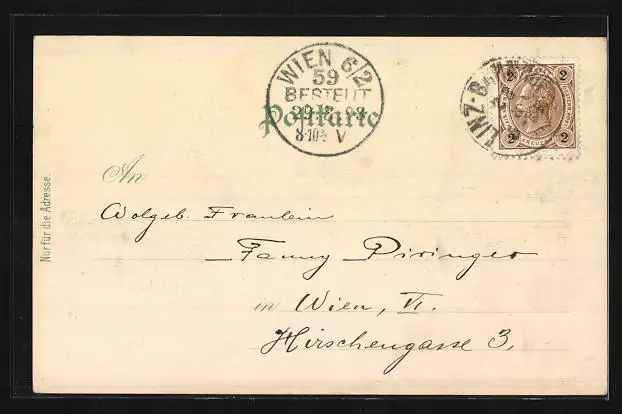 WIEN 6/2
59
BESTELLT
Postkarte
LINZ-BAHNHOF
2 2
2 2
Nur für die Adresse.
An
Wolgeb. Fraulein
Fanny Piringer
in Wien, VI.
Hirschengasse 3,